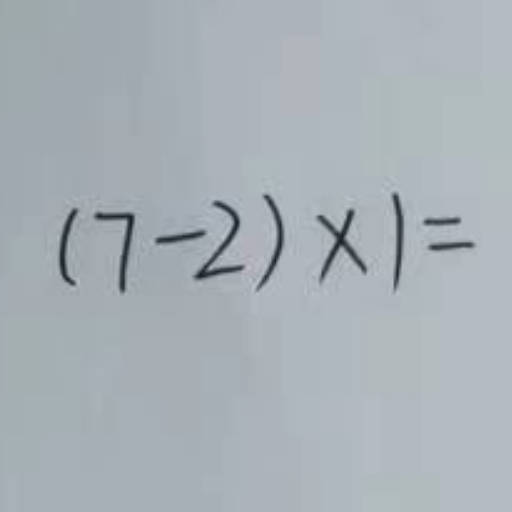 (7-2)×1=